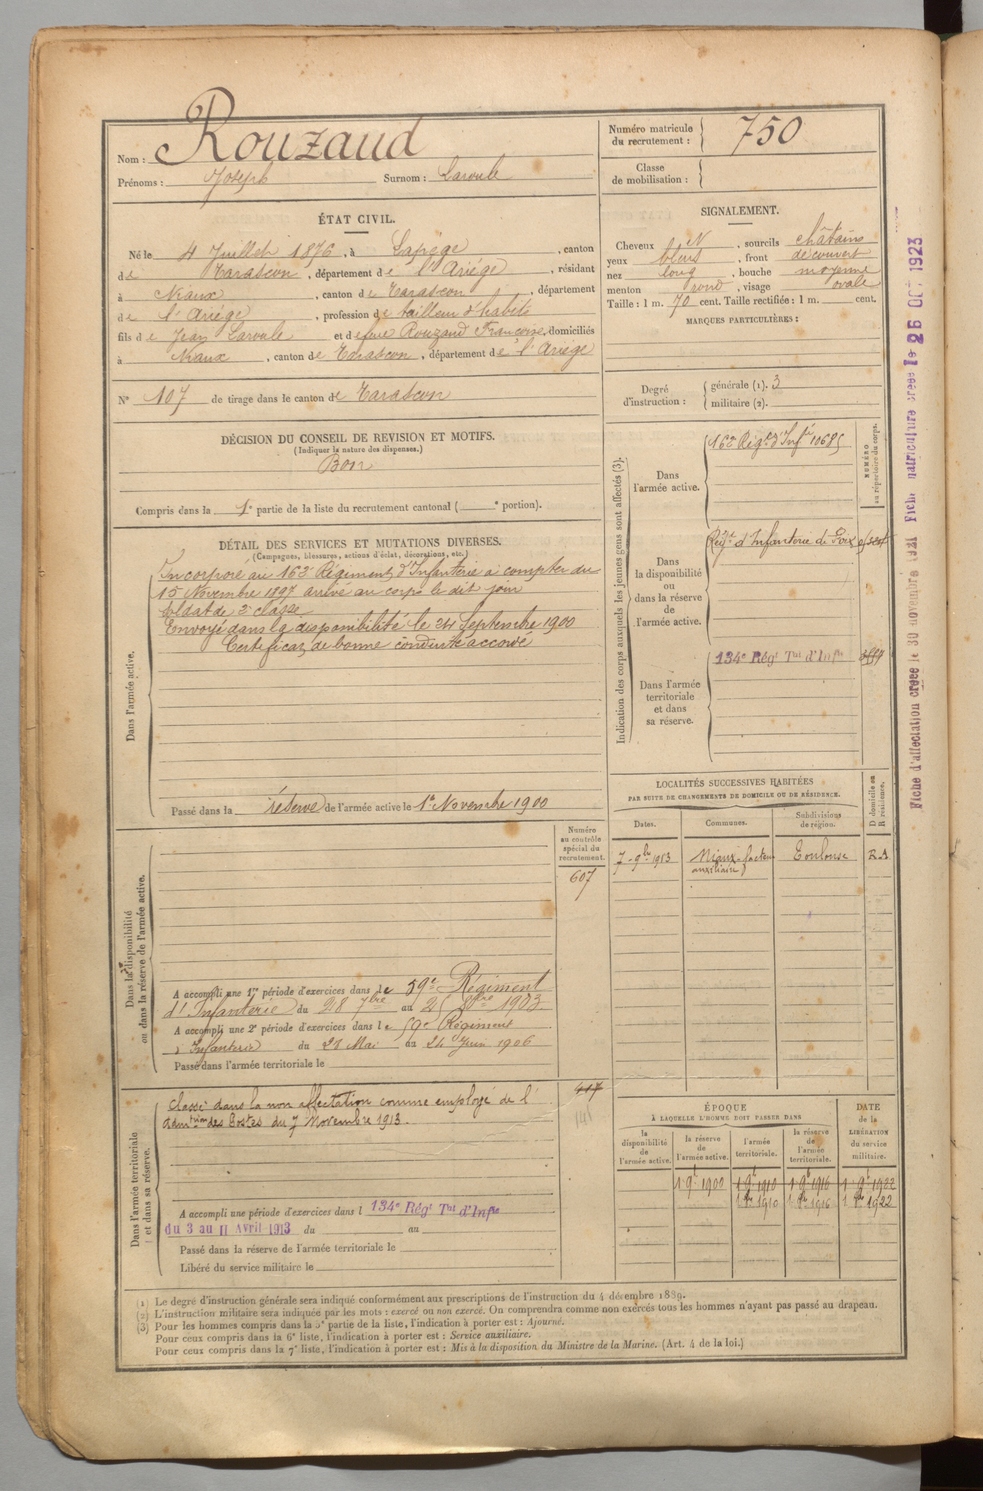 Nom : Rouzaud
Prénoms : Joseph Surnom : Laroule
Numéro matricule du recrutement : 750
Classe de mobilisation :
ÉTAT CIVIL.
Né le 4 Juillet 1876, à Lapège, canton
de Tarascon, département de l'Ariège, résidant
à Niaux, canton de Tarascon, département
de l'Ariège, profession de tailleur d'habits
fils de Jean Laroule et de feue Rouzaud Françoise, domiciliés
à Niaux, canton de Tarascon, département de l'Ariège
N° 107 de tirage dans le canton de Tarascon
DÉCISION DU CONSEIL DE REVISION ET MOTIFS.
(Indiquer la nature des dispenses.)
Bon
Compris dans la 1e partie de la liste du recrutement cantonal ( e portion).
SIGNALEMENT.
Cheveux N, sourcils châtains
yeux bleus, front découvert
nez long, bouche moyenne
menton rond, visage ovale
Taille : 1 m. 70 cent. Taille rectifiée : 1 m. cent.
MARQUES PARTICULIÈRES :
Degré d'instruction : générale (1). 3
militaire (2).
DÉTAIL DES SERVICES ET MUTATIONS DIVERSES.
(Campagnes, blessures, actions d'éclat, décorations, etc.)
Dans l'armée active.
Incorporé au 162e Régiment d'Infanterie à compter du
15 Novembre 1897 arrivé au corps le dit jour
soldat de 2e classe
Envoyé dans la disponibilité le 24 Septembre 1900
Certificat de bonne conduite accordé
Passé dans la réserve de l'armée active le 1er Novembre 1900
Indication des corps auxquels les jeunes gens sont affectés (3).
NUMÉRO au répertoire du corps.
Dans l'armée active.
162e Régt d'Infie 10685
Dans la disponibilité ou dans la réserve de l'armée active.
Régt d'Infanterie de Foix
Dans l'armée territoriale et dans sa réserve.
134e Régt Tal d'Infie
LOCALITÉS SUCCESSIVES HABITÉES
PAR SUITE DE CHANGEMENTS DE DOMICILE OU DE RÉSIDENCE.
Dates. Communes. Subdivisions de région. D domicile ou R résidence.
7 - 9bre 1913 Niaux (facteur auxiliaire) Toulouse R.A
Numéro au contrôle spécial du recrutement.
607
Dans la disponibilité ou dans la réserve de l'armée active.
A accompli une 1re période d'exercices dans le 59e Régiment
d'Infanterie du 28 7bre au 25 8bre 1903
A accompli une 2e période d'exercices dans le 59e Régiment
d'Infanterie du 21 Mai au 24 Juin 1906
Passé dans l'armée territoriale le
Dans l'armée territoriale et dans sa réserve.
Classé dans la non affectation comme employé de l'
admtion des Postes du 7 Novembre 1913.
A accompli une période d'exercices dans l 134e Régt Tal d'Infie
du 3 au 11 Avril 1913 du au
Passé dans la réserve de l'armée territoriale le
Libéré du service militaire le
ÉPOQUE
À LAQUELLE L'HOMME DOIT PASSER DANS
DATE de la LIBÉRATION du service militaire.
la disponibilité de l'armée active. la réserve de l'armée active. l'armée territoriale. la réserve de l'armée territoriale.
1 9b 1900 1 9b 1910 1 9b 1916 1 9b 1922
1 9bre 1910 1 9bre 1916 1 9bre 1922
(1) Le degré d'instruction générale sera indiqué conformément aux prescriptions de l'instruction du 4 décembre 1889.
(2) L'instruction militaire sera indiquée par les mots : exercé ou non exercé. On comprendra comme non exercés tous les hommes n'ayant pas passé au drapeau.
(3) Pour les hommes compris dans la 5e partie de la liste, l'indication à porter est : Ajourné.
Pour ceux compris dans la 6e liste, l'indication à porter est : Service auxiliaire.
Pour ceux compris dans la 7e liste, l'indication à porter est : Mis à la disposition du Ministre de la Marine. (Art. 4 de la loi.)
Fiche d'affectation créée le 30 novembre 1921 Fiche matriculaire créée le 26 OCT 1923